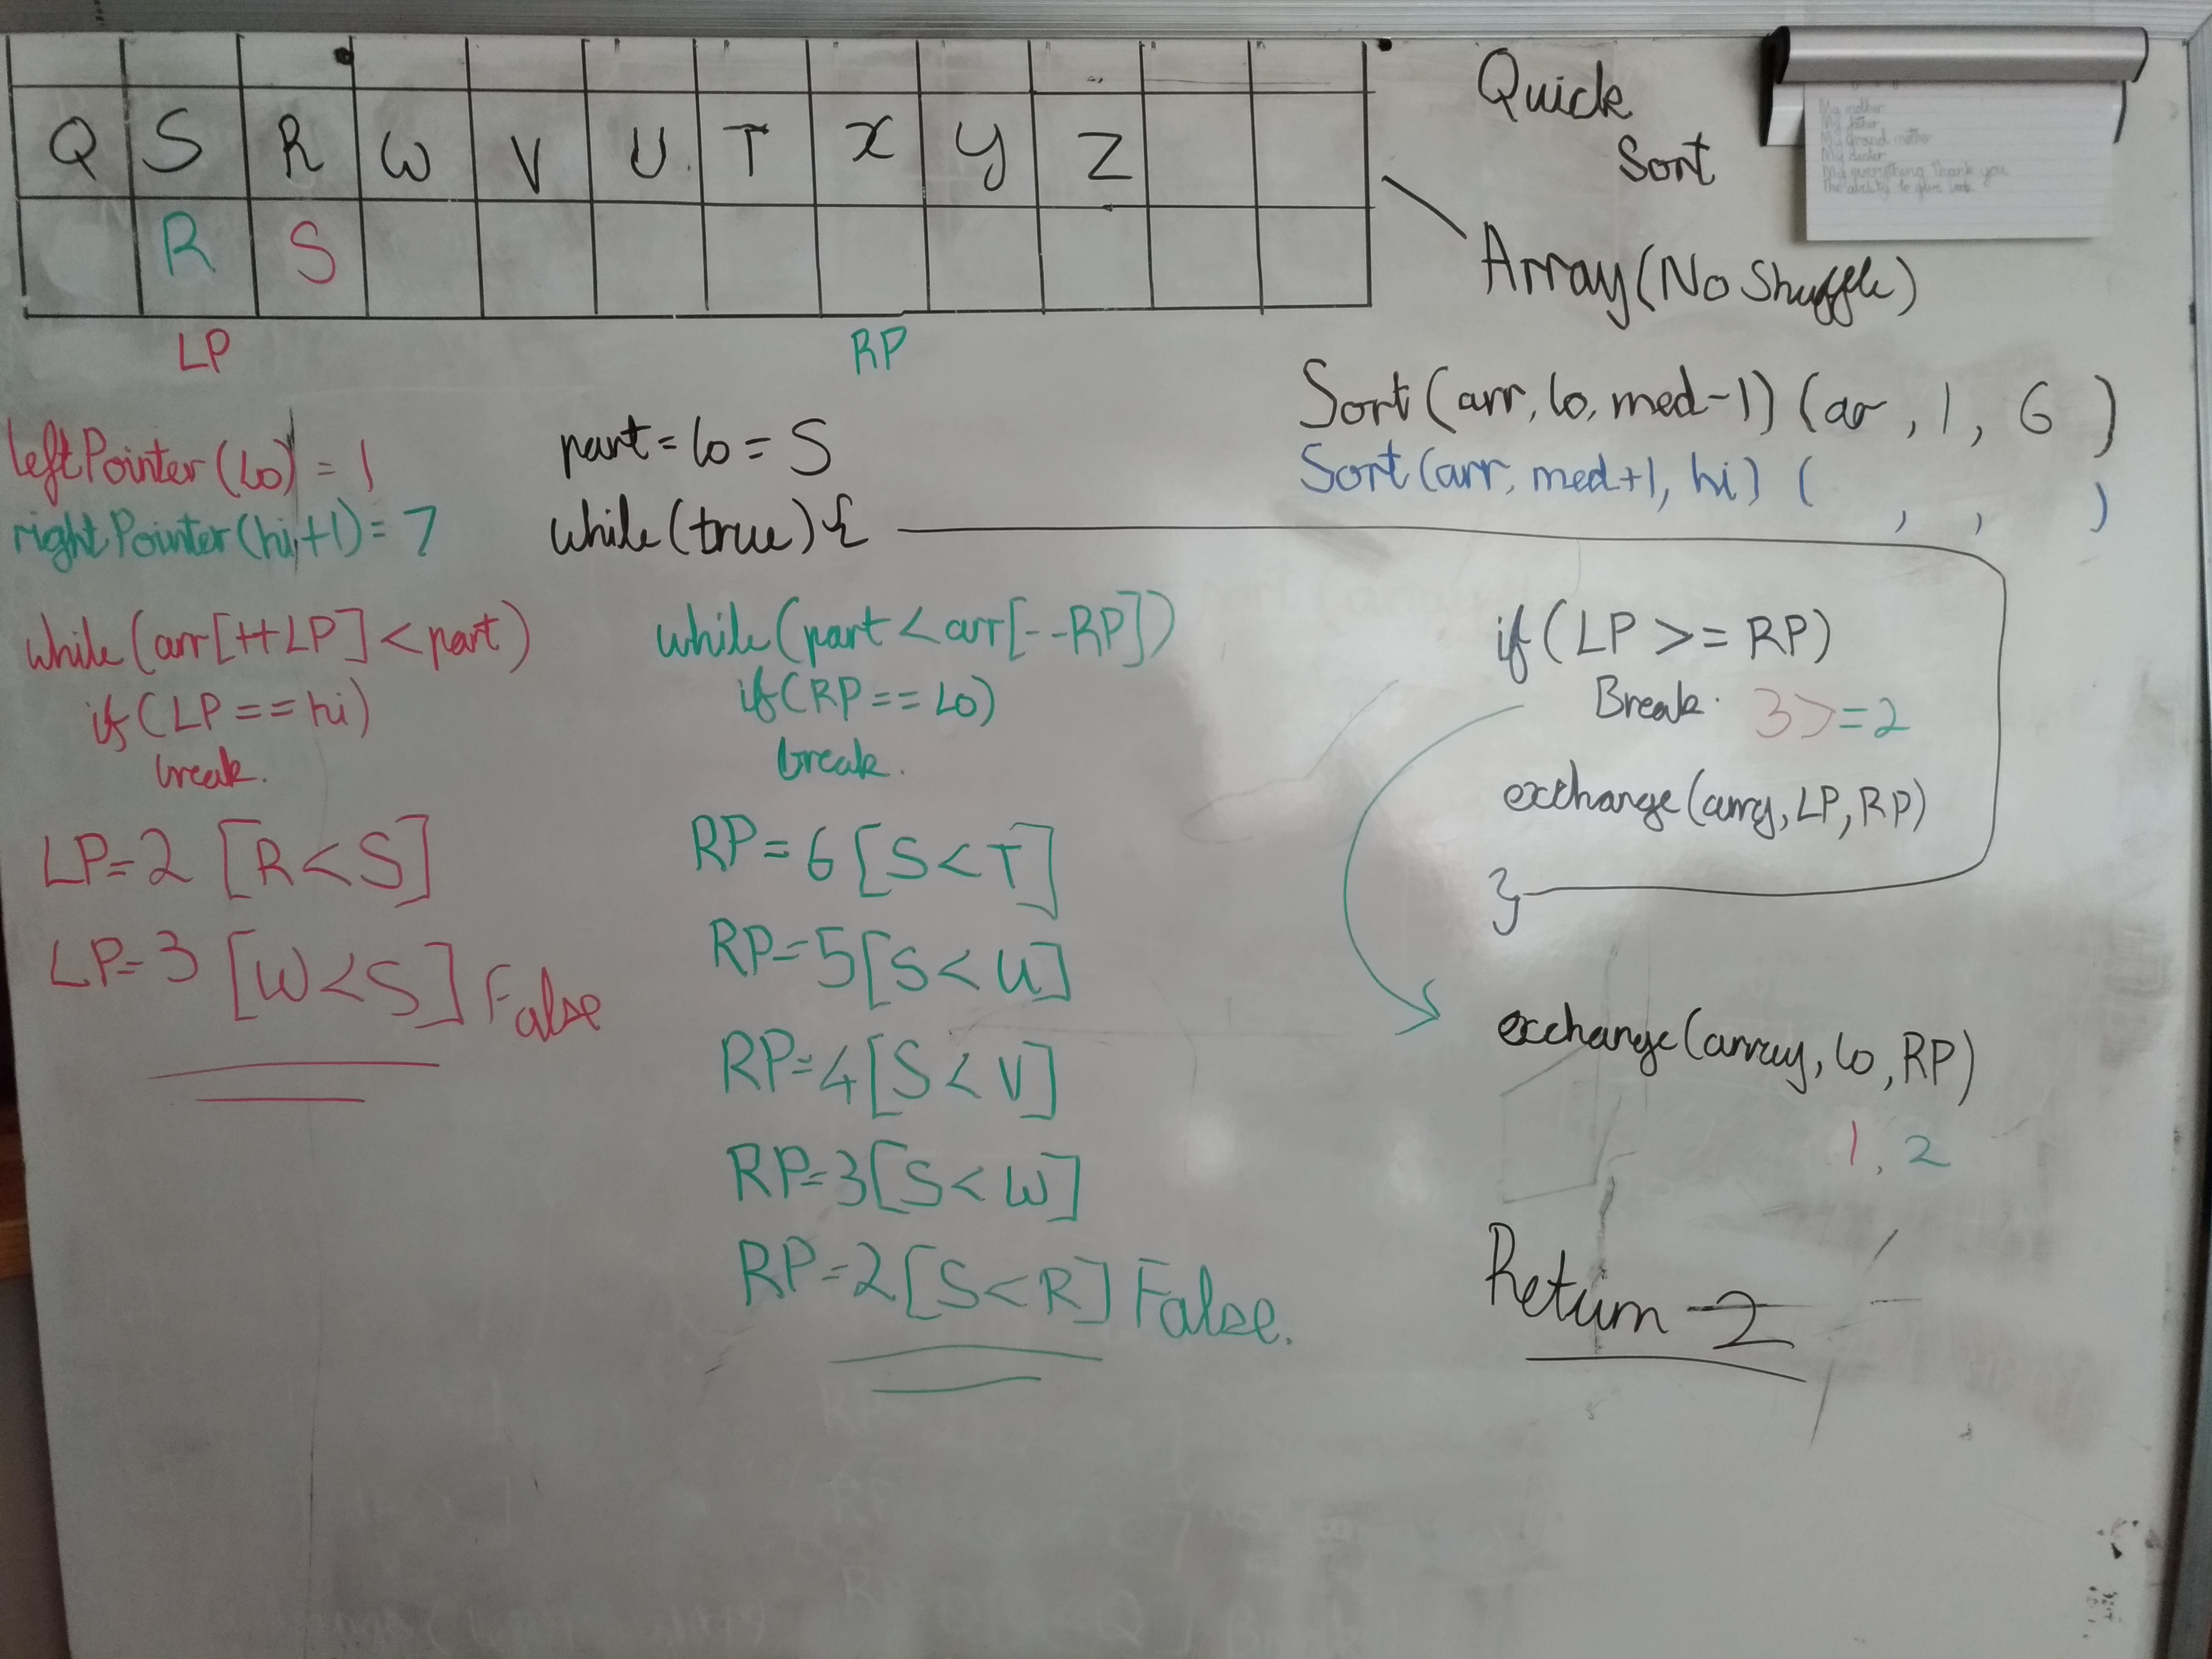 Quick
Sort
Q S R W V U T X Y Z
R S
LP RP
Array (No Shuffle)
My mother
My father
My Grand mother
My sister
My everything Thank you
The ability to give
Sort (arr, lo, med-1) (ar, 1, 6 )
Sort (arr, med+1, hi) ( , , )
leftPointer (Lo) = 1
rightPointer (hi+1) = 7
part = lo = S
while (true) {
while (arr[++LP] < part)
if (LP == hi)
break.
LP=2 [R<S]
LP=3 [W<S] False
while (part < arr[--RP])
if (RP == Lo)
break.
RP=6 [S<T]
RP=5 [S<U]
RP=4 [S<V]
RP=3 [S<W]
RP=2 [S<R] False.
if (LP >= RP)
Break. 3>=2
exchange (arry, LP, RP)
}
exchange (array, lo, RP)
1, 2
Return 2